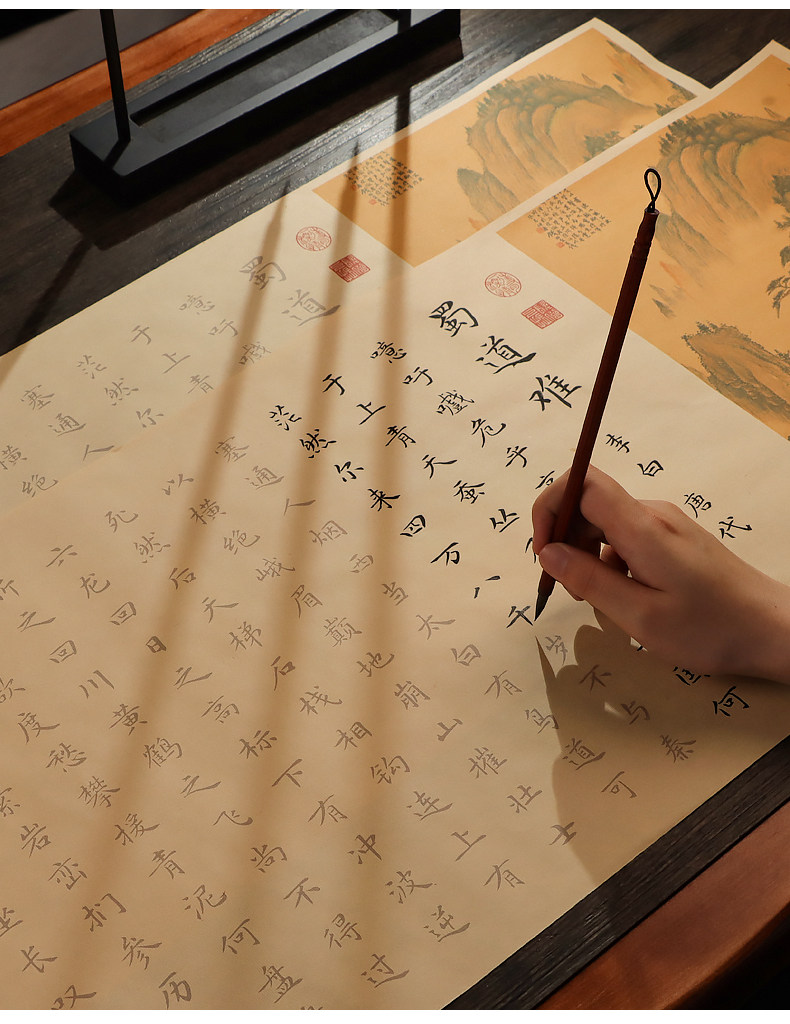 蜀道难 李白 唐代
噫吁嚱危乎高
于上青天蚕丛国何
茫然尔来四万八千岁不与秦
塞通人烟西当太白有鸟道可
以横绝峨眉巅地崩山摧壮士
死然后天梯石栈相钩连上有
六龙回日之高标下有冲波逆
折之回川黄鹤之飞尚不得过
欲度愁攀援青泥何盘
萦岩峦扪参历
坐长叹
蜀道
噫吁嚱
于上青
茫然尔
塞通人
横绝